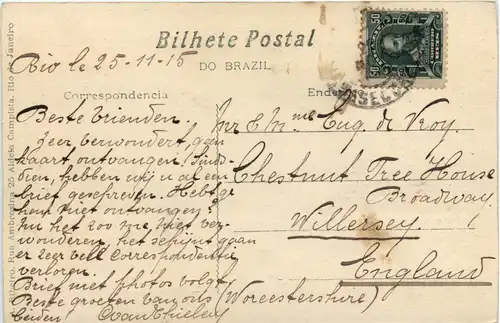 Bilhete Postal
DO BRAZIL
Rio le 25-11-15
Correspondencia
Beste Vrienden.
Zeer verwondert, geen
kaart ontvangen! Sinds-
dien, hebben wij u al een
brief geschreven. Hebt ge
hem niet ontvangen?
In het zoo
wonderen, het schijnt gaan
er zeer veel Correspondentie
verloren.
Brief met photos volgt,
Beste groeten van ons
beiden!
Mr & Mme Eug. de Kroy.
Chestnut Tree House
Broadway
Willersey.
England
(Worcestershire)
Ribeiro, Rua Ambrosina 25, Aldeia Campista, Rio de Janeiro
50
50